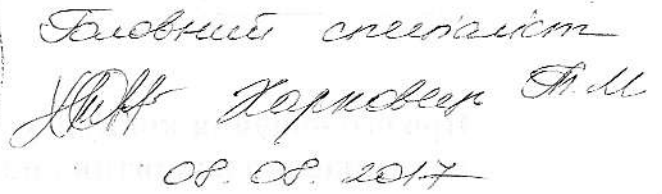 Головний спеціаліст
Харковець Т.М
08.08.2017